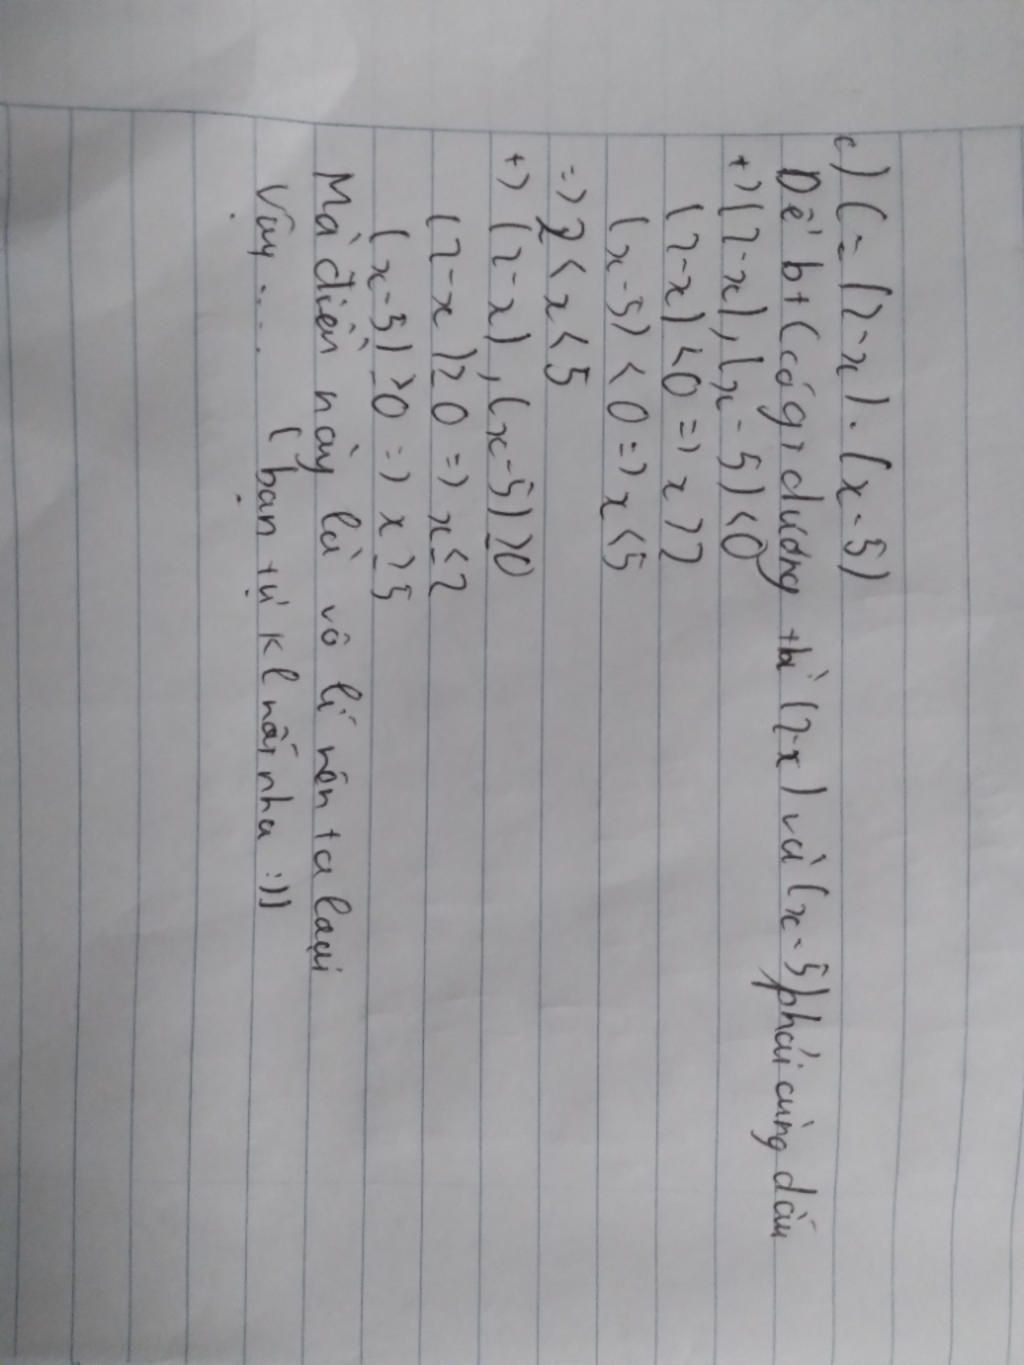 c) C = (2-x).(x-5)
Để bt C có giá trị dương thì (2-x) và (x-5) phải cùng dấu
+) (2-x), (x-5) < 0
(2-x) < 0 => x > 2
(x-5) < 0 => x < 5
=> 2 < x < 5
+) (2-x), (x-5) ≥ 0
(2-x) ≥ 0 => x ≤ 2
(x-5) ≥ 0 => x ≥ 5
Mà điều này là vô lí nên ta loại
Vậy .... (bạn tự kl nốt nha :))